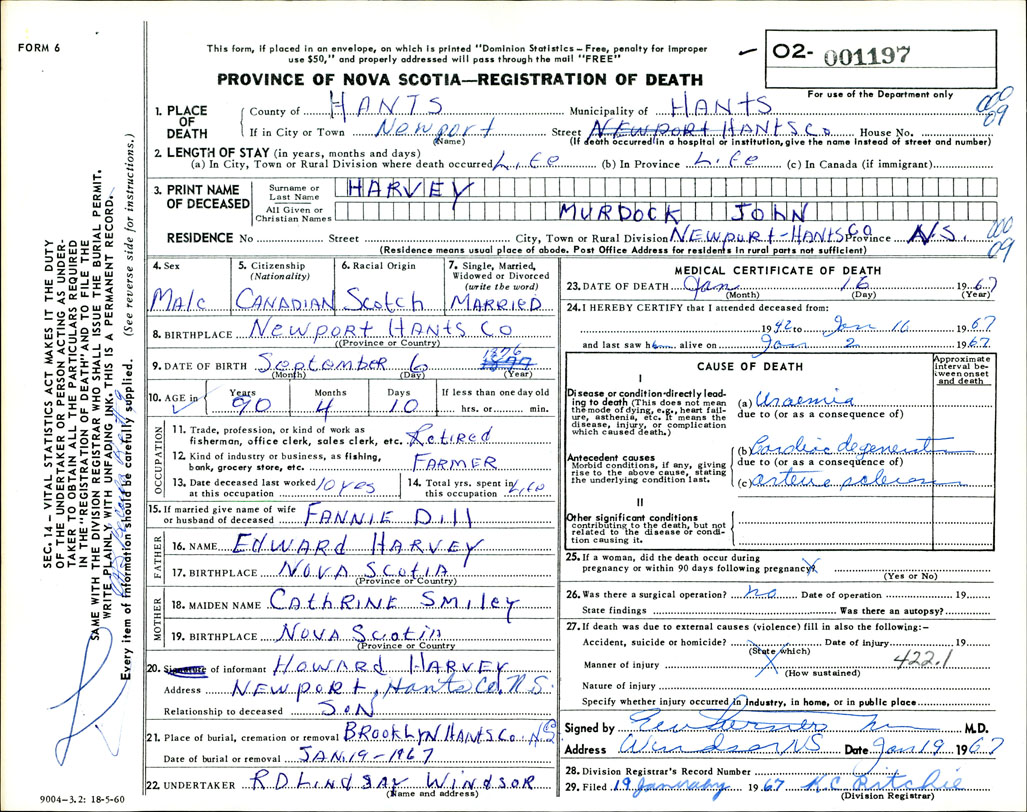 FORM 6
This form, if placed in an envelope, on which is printed "Dominion Statistics – Free, penalty for improper
use $50," and properly addressed will pass through the mail "FREE"
02- 001197
For use of the Department only
PROVINCE OF NOVA SCOTIA—REGISTRATION OF DEATH
1. PLACE OF DEATH
County of HANTS Municipality of HANTS
000 09
If in City or Town Newport Street NEWPORT HANTS Co House No.
(Name) (If death occurred in a hospital or institution, give the name instead of street and number)
2. LENGTH OF STAY (in years, months and days)
(a) In City, Town or Rural Division where death occurred Life (b) In Province Life (c) In Canada (if immigrant)
3. PRINT NAME OF DECEASED
Surname or Last Name HARVEY
All Given or Christian Names MURDOCK JOHN
RESIDENCE No Street City, Town or Rural Division NEWPORT-HANTS Co Province N.S.
000 09
(Residence means usual place of abode. Post Office Address for residents in rural parts not sufficient)
4. Sex Male
5. Citizenship (Nationality) CANADIAN
6. Racial Origin Scotch
7. Single, Married, Widowed or Divorced (write the word) MARRIED
8. BIRTHPLACE NEWPORT HANTS CO
(Province or Country)
9. DATE OF BIRTH September 6 1876
(Month) (Day) (Year)
10. AGE in Years 90 Months 4 Days 10 If less than one day old hrs. or min.
OCCUPATION
11. Trade, profession, or kind of work as fisherman, office clerk, sales clerk, etc. Retired
12. Kind of industry or business, as fishing, bank, grocery store, etc. FARMER
13. Date deceased last worked at this occupation 10 yrs
14. Total yrs. spent in this occupation Life
15. If married give name of wife or husband of deceased FANNIE Dill
FATHER
16. NAME EDWARD HARVEY
17. BIRTHPLACE NOVA SCOTIA
(Province or Country)
MOTHER
18. MAIDEN NAME CATHRINE SMILEY
19. BIRTHPLACE NOVA SCOTIA
(Province or Country
20. Signature of informant HOWARD HARVEY
Address NEWPORT, Hants Co. N.S.
Relationship to deceased SON
21. Place of burial, cremation or removal BROOKLYN HANTS Co NS
Date of burial or removal JAN. 19-1967
22. UNDERTAKER R D LINDSAY WINDSOR
(Name and address)
9004–3.2: 18-5-60
MEDICAL CERTIFICATE OF DEATH
23. DATE OF DEATH Jan 16 1967
(Month) (Day) (Year)
24. I HEREBY CERTIFY that I attended deceased from:
1942 to Jan 16 1967
and last saw him alive on Jan 2 1967
CAUSE OF DEATH
Approximate interval between onset and death
I
Disease or condition directly leading to death (This does not mean the mode of dying, e.g., heart failure, asthenia, etc. It means the disease, injury, or complication which caused death.)
(a) Uraemia
due to (or as a consequence of)
Antecedent causes
Morbid conditions, if any, giving rise to the above cause, stating the underlying condition last.
(b) Cardiac degenerat
due to (or as a consequence of)
(c) arterio scleros
II
Other significant conditions contributing to the death, but not related to the disease or condition causing it.
25. If a woman, did the death occur during
pregnancy or within 90 days following pregnancy? X
(Yes or No)
26. Was there a surgical operation? no Date of operation 19
State findings Was there an autopsy?
27. If death was due to external causes (violence) fill in also the following:–
Accident, suicide or homicide? Date of injury 19
(State which)
Manner of injury 422.1
(How sustained)
Nature of injury
Specify whether injury occurred in industry, in home, or in public place
Signed by M.D.
Address Windsor NS Date Jan 19 1967
28. Division Registrar's Record Number
29. Filed 19 January 1967 Ritchie
(Division Registrar)
SEC. 14 – VITAL STATISTICS ACT MAKES IT THE DUTY
OF THE UNDERTAKER OR PERSON ACTING AS UNDER-
TAKER TO OBTAIN ALL THE PARTICULARS REQUIRED
IN THE "REGISTRATION OF DEATH" AND TO FILE THE
SAME WITH THE DIVISION REGISTRAR WHO SHALL ISSUE THE BURIAL PERMIT.
WRITE PLAINLY WITH UNFADING INK. THIS IS A PERMANENT RECORD.
Every item of information should be carefully supplied. (See reverse side for instructions.)